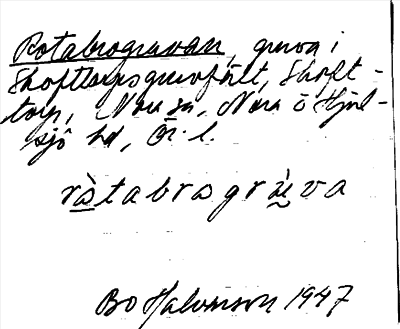 Rotabrogruvan, gruva i
Skofttorpsgruvfält, Skoft-
torp, Nora sn, Nora o Hjul-
sjö hd, Ör. l.
rà̱tabrogrùva
Bo Halvarson 1947